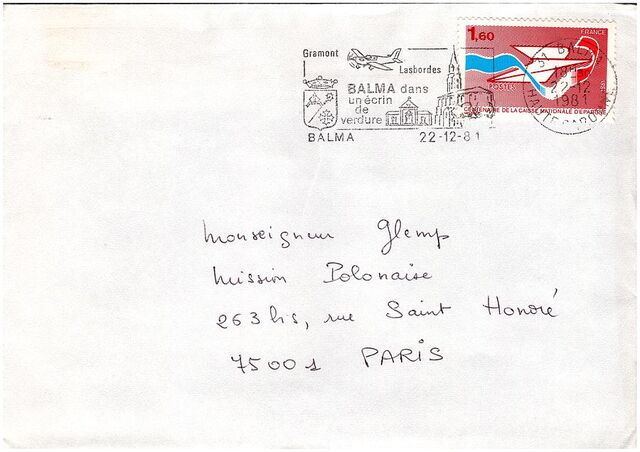 1,60
FRANCE
POSTES
CENTENAIRE DE LA CAISSE NATIONALE D'EPARGNE
31 BALMA
22-12
1981
Gramont
Lasbordes
BALMA dans
un écrin
de
verdure
BALMA
22-12-81
Monseigneur Glemp
Mission Polonaise
263 bis, rue Saint Honoré
75001 PARIS